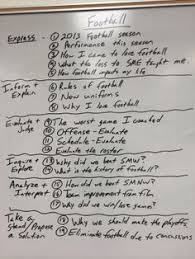 Football
Express - ① 2013 Football season
② Performance this season
③ How I came to love football
④ What the loss to SME taught me.
⑤ How football impacts my life
Inform + Explain
⑥ Rules of football
⑦ New uniforms
⑧ Why I love football
Evaluate + Judge
⑨ The worst game I coached
⑩ Offense - Evaluate
⑪ Schedule - Evaluate
⑫ Evaluate the roster
Inquire + Explore
⑬ Why did we beat SMW?
⑭ What is the history of football?
Analyze + Interpret
⑮ How did we beat SMNW?
⑯ Been in football
⑰ Why did we win/lose games?
Take a stand/Propose a solution
⑱ Why we should make the playoffs
⑲ Eliminate football due to concussions